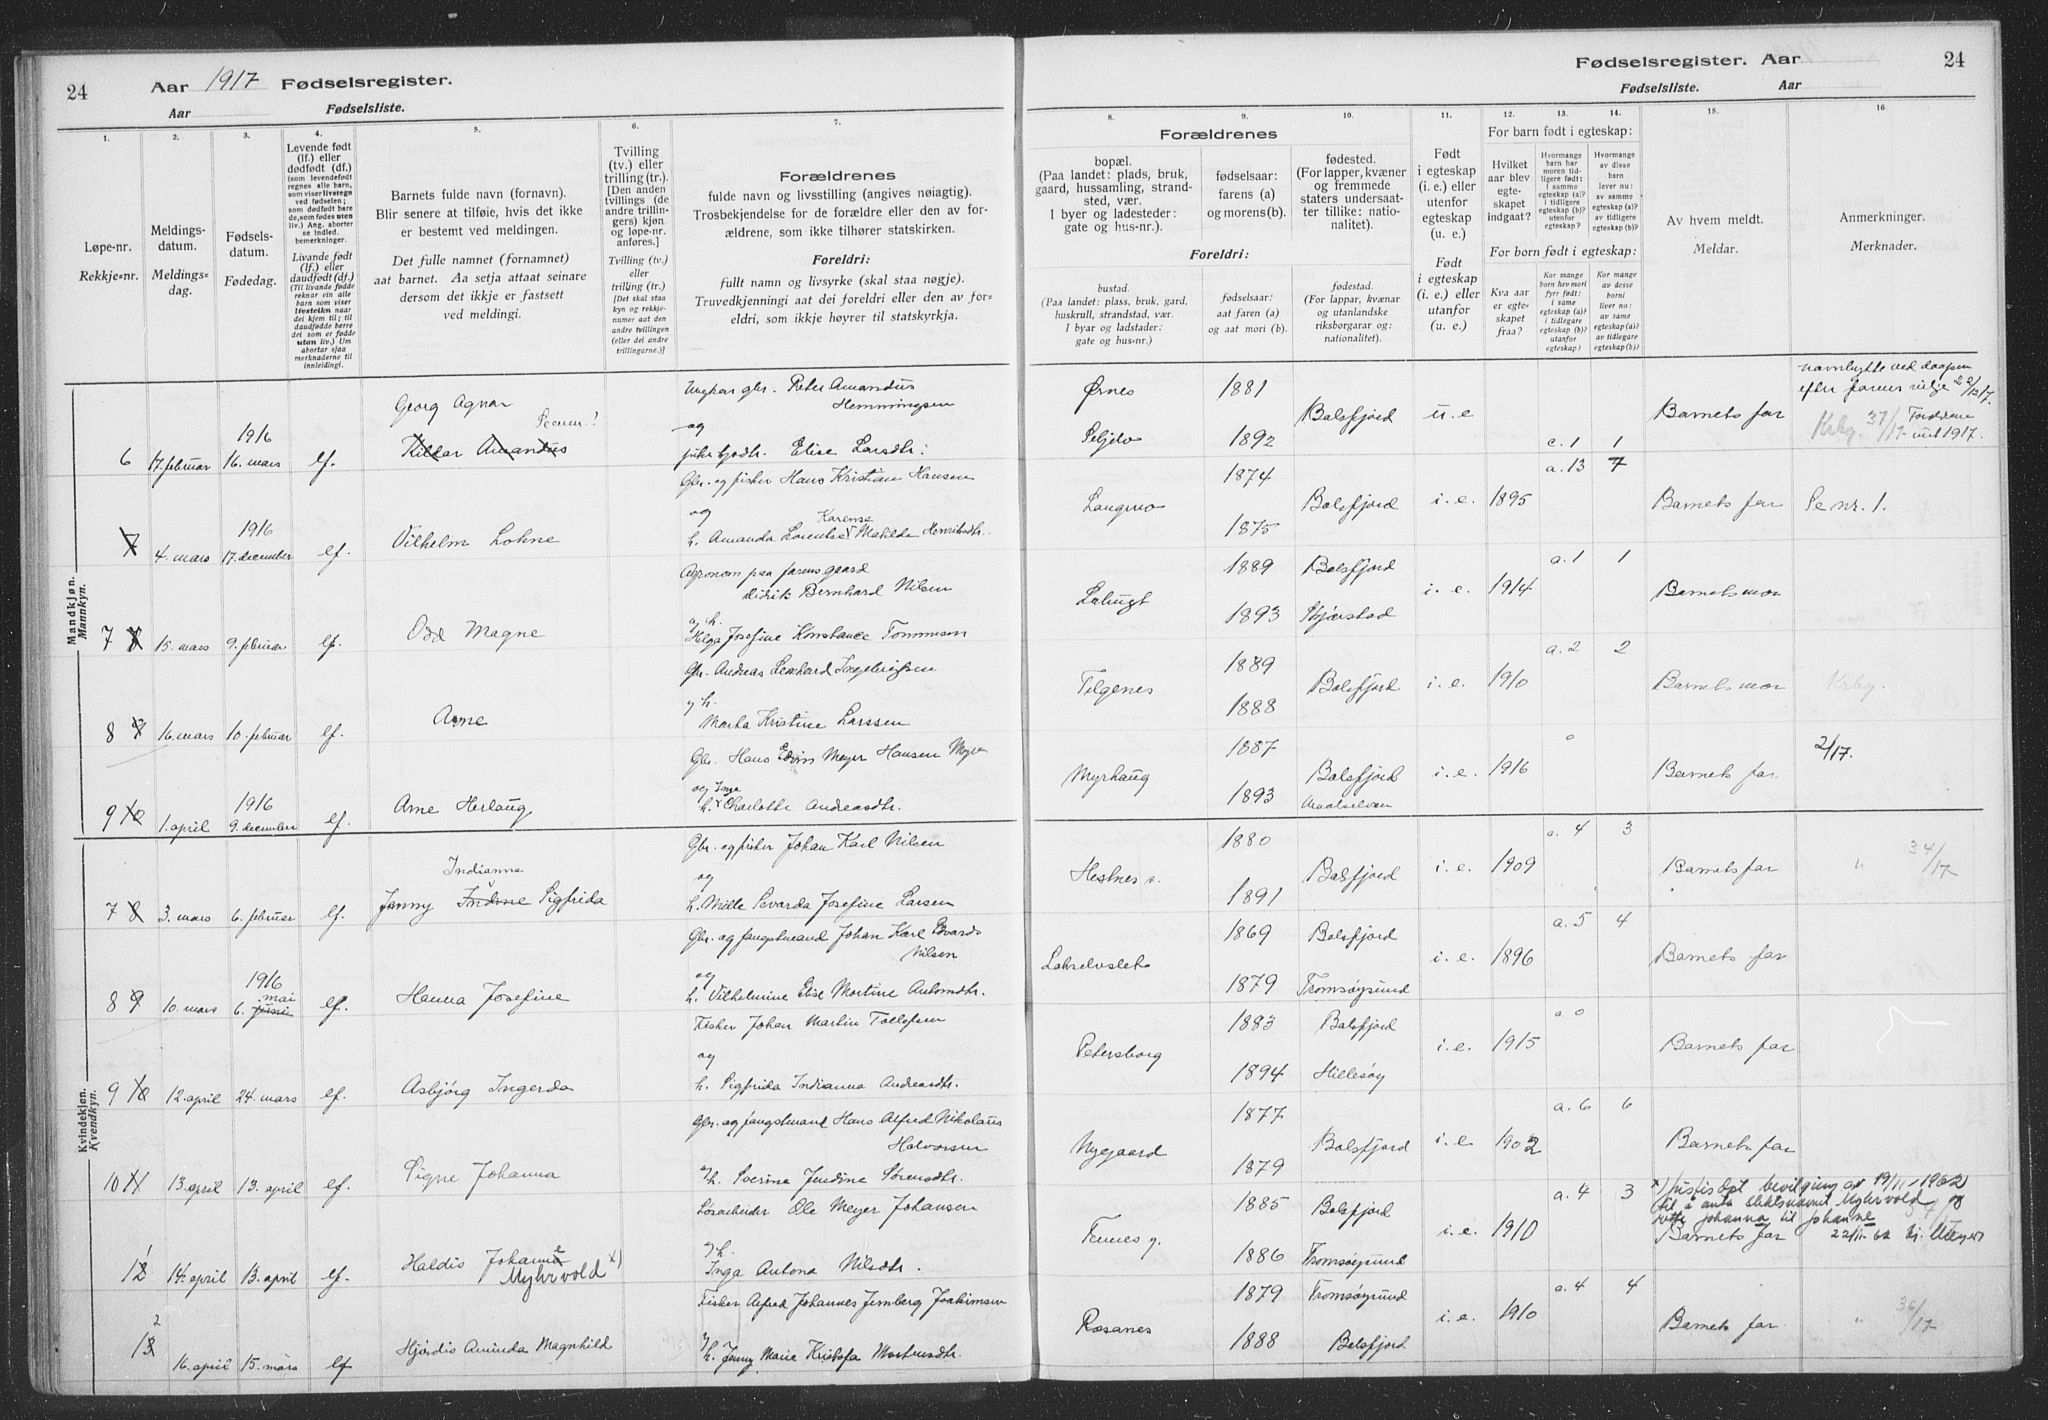 24 Aar 1917 Fødselsregister.
Aar Fødselsliste.
1. 2. 3. 4. 5. 6. 7.
Løpe-nr.
Rekkje-nr.
Meldings-
datum.
Meldings-
dag.
Fødsels-
datum.
Fødedag.
Levende født
(lf.) eller
dødfødt (df.)
(som levendefødt
regnes alle barn,
som viser livstegn
ved fødselen;
som dødfødt barn
de, som fødes uten
liv.) Ang. aborter
se indled.
bemerkninger.
Livande født
(lf.) eller
daudfødt (df.)
(Til livande fødde
reknar ein alle
barn som viser
livsteikn naar
dei kjem til; til
daudfødde berre
dei som er fødde
utan liv.) Um
abortar sjaa
merknaderne til
innleidingi.
Barnets fulde navn (fornavn).
Blir senere at tilføie, hvis det ikke
er bestemt ved meldingen.
Det fulle namnet (fornamnet)
aat barnet. Aa setja attaat seinare
dersom det ikkje er fastsett
ved meldingi.
Tvilling
(tv.) eller
trilling (tr.).
[Den anden
tvillings (de
andre trillin-
gers) kjøn
og løpe-nr.
anføres.]
Tvilling (tv.)
eller
trilling (tr.)
[Det skal staa
kyn og rekkje-
numer aat den
andre tvillingen
(eller dei andre
trillingarne.)]
Forældrenes
fulde navn og livsstilling (angives nøiagtig).
Trosbekjendelse for de forældre eller den av for-
ældrene, som ikke tilhører statskirken.
Foreldri:
fullt namn og livsyrke (skal staa nøgje).
Truvedkjenningi aat dei foreldri eller den av for-
eldri, som ikkje høyrer til statskyrkja.
Mandkjøn.
Mannkyn.
Georg Agnar
Ungkar gbr. Peter Amandus
Hemmingsen
og
1916
6 17. februar 16. mars lf. Kildar Amandus
Elise Larsdtr.
Gbr. og fisker Hans Kristian Hansen
og Karense
1916
7 4. mars 17. december lf. Vilhelm Lohne
h. Amanda Lorentse Matilde Henriksdtr.
Agronom paa farens gaard
Didrik Bernhard Nilsen
o. h.
7 8 15. mars 9. februar lf. Odd Magne
Helga Josefine Konstance Tommesen
Gbr. Andreas Lenhard Ingebrigtsen
o. h.
8 9 16. mars 10. februar lf. Arne
Marta Kristine Larssen
Gbr. Hans Edvin Meyer Hansen
og Inga
1916
9 10 1. april 9. december lf. Arne Herlaug
h. Charlotte Andreasdtr.
Kvindekjøn.
Kvendkyn.
Gbr. og fisker Johan Karl Nilsen
Indianna
og
7 8 3. mars 6. februar lf. Jenny Indine Sigfrida
h. Mille Sevarda Josefine Larsen
Gbr. og fangstmand Johan Karl Edvards
Nilsen
og
1916
mai
8 9 10. mars 6. juni lf. Hanna Josefine
h. Vilhelmine Elise Martine Antonsdtr.
Fisker Johan Martin Tollefsen
og
9 10 12. april 24. mars lf. Asbjørg Ingerda
h. Sigfrida Indianna Andreasdtr.
Gbr. og fangstmand Hans Alfred Nikolaus
Halvorsen
10 11 13. april 13. april lf. Signe Johanna
o. h. Severine Jendine Sørensdtr.
Løsarbeider Ole Meyer Johansen
o. h.
12 14. april 13. april lf. Haldis Johanne
Myhrvold x)
Inga Antona Nilsdtr.
Fisker Alfred Johannes Jernberg Joakimsen
o.
2
13 16. april 15. mars lf Hjørdis Aminda Magnhild
h. Jenny Marie Kristofa Mortensdtr.
Fødselsregister. Aar 24
Fødselsliste. Aar
8. 9. 10. 11. 12. 13. 14. 15. 16.
Forældrenes
bopæl.
(Paa landet: plads, bruk,
gaard, hussamling, strand-
sted, vær.
I byer og ladesteder:
gate og hus-nr.).
fødselsaar:
farens (a)
og morens (b).
fødested.
(For lapper, kvæner
og fremmede
staters undersaat-
ter tillike: natio-
nalitet).
Foreldri:
bustad.
(Paa landet: plass, bruk, gard,
huskrull, strandstad, vær.
I byar og ladstader:
gate og hus-nr.)
fødselsaar:
aat faren (a)
og aat mori (b).
fødestad.
(For lappar, kvænar
og utanlandske
riksborgarar og:
nationalitet).
Født
i egteskap
(i. e.) eller
utenfor
egteskap
(u. e.)
Født
i egteskap
(i. e.) eller
utanfor
(u. e.)
For barn født i egteskap:
Hvilket
aar blev
egte-
skapet
indgaat?
Hvormange
barn har
moren tid-
ligere født:
i samme
egteskap (a)?
i tidligere
egteskap (b)?
utenfor
egteskap?
Hvormange
av disse
barn
lever nu:
av samme
egteskap (a)?
av tidligere
egteskap (b)?
For born født i egteskap:
Kva aar
er egte-
skapet
fraa?
Kor mange
born hev mori
fyrr født:
i same
egteskap (a)?
i tidlegare
egteskap (b)?
utanfor
egteskap?
Kor mange
av desse
borni
liver no:
av same
egteskap (a)?
av tidlegare
egteskap (b)?
Av hvem meldt.
Meldar.
Anmerkninger.
Merknader.
Ørnes 1881
Balsfjord u. e
Seljelv 1892 c. 1 1
Barnets far
navnbytte ved daapen
efter farens vilje
1917.
Langmo 1874 a. 13 7
Balsfjord i. e. 1895 Barnets far Se nr. 1.
1875
1889 Balsfjord a. 1 1
i. e. 1914 Barnets mor
1893
1889 a. 2 2
Balsfjord i. e. 1910 Barnets mor Krbg.
1888
1887 o
Myrhaug Balsfjord i. e. 1916 Barnets far 2/17.
1893 Maalselven
1880 a. 4 3
Balsfjord i. e. 1909 Barnets far " 34/17
1891
1869 Balsfjord a. 5 4
Lakselvslet i. e. 1896 Barnets far
1879 Tromsøysund
1883 Balsfjord a. 0
Petersborg i. e. 1915 Barnets far
1894 Hillesøy
1877 a. 6 6
Nygaard Balsfjord i. e 1902 Barnets far
1879
1885 Balsfjord a. 4 3
x) Justisdept bevilging av 19/11-1962
til å anta slektsnavnet Myhrvold
rette Johanna til Johanne
i. e. 1910 Barnets far 22/11-62
1886 Tromsøysund
1879 Tromsøysund a. 4 4
Rosanes i. e. 1910 Barnets far " 36/17
1888 Balsfjord